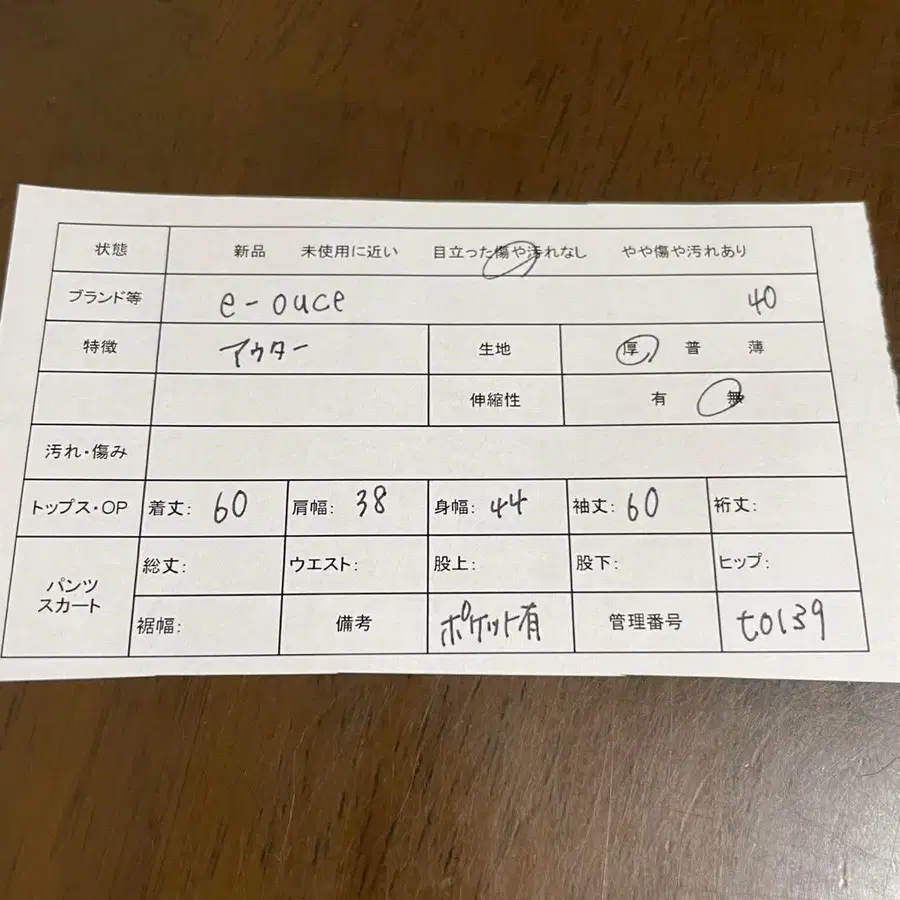 状態 新品 未使用に近い 目立った傷や汚れなし やや傷や汚れあり
ブランド等 e-ouce 40
特徴 アウター 生地 厚 普 薄
伸縮性 有 無
汚れ・傷み
トップス・OP 着丈: 60 肩幅: 38 身幅: 44 袖丈: 60 裄丈:
パンツ スカート 総丈: ウエスト: 股上: 股下: ヒップ:
裾幅: 備考 ポケット有 管理番号 t0139